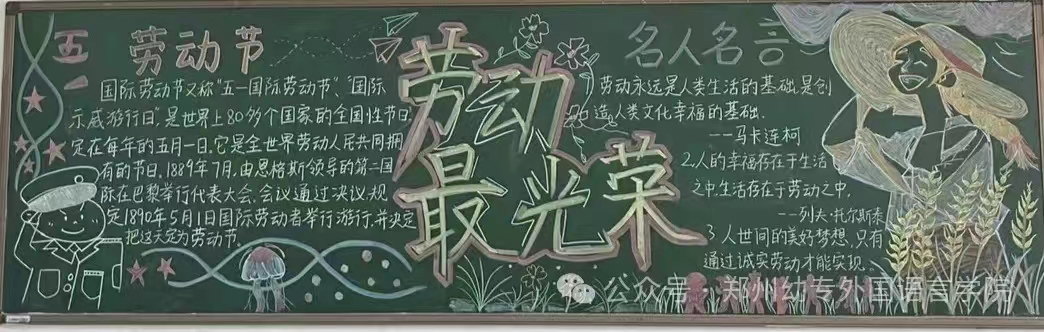 五一
劳动节
国际劳动节又称"五一国际劳动节"、"国际
示威游行日",是世界上80多个国家的全国性节日.
定在每年的五月一日.它是全世界劳动人民共同拥
有的节日,1889年7月,由恩格斯领导的第二国
际在巴黎举行代表大会,会议通过决议,规
定1890年5月1日国际劳动者举行游行,并决定
把这天定为劳动节.
劳动
最光荣
名人名言
1.劳动永远是人类生活的基础,是创
造人类文化幸福的基础.
——马卡连柯
2.人的幸福存在于生活
之中,生活存在于劳动之中.
——列夫·托尔斯泰
3.人世间的美好梦想,只有
通过诚实劳动才能实现.
公众号·郑州幼专外国语言学院